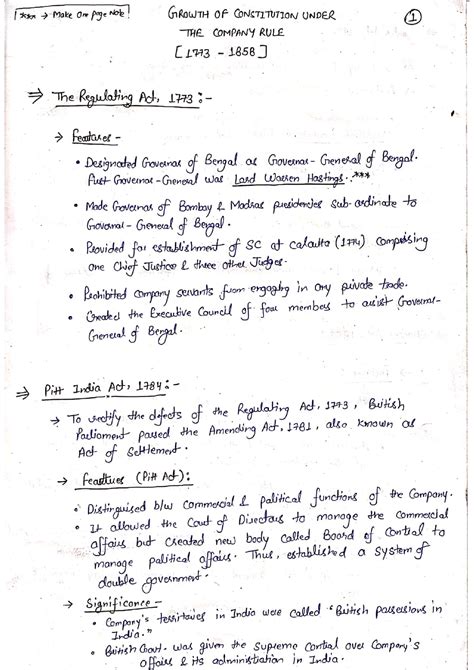 *** → Make One page Note!
GROWTH OF CONSTITUTION UNDER
THE COMPANY RULE
[1773 - 1858]
1
⇒ The Regulating Act, 1773 :-
→ Features -
• Designated Governor of Bengal as Governor-General of Bengal.
First Governor-General was Lord Warren Hastings. ***
• Made Governors of Bombay & Madras presidencies sub-ordinate to
Governor-General of Bengal.
• Provided for establishment of SC at Calcutta (1774) comprising
one Chief Justice & three other Judges.
• Prohibited company servants from engaging in any private trade.
• Created the Executive Council of four members to assist Governor-
General of Bengal.
⇒ Pitt India Act, 1784 :-
→ To rectify the defects of the Regulating Act, 1773, British
Parliament passed the Amending Act, 1781, also known as
Act of Settlement.
→ Features (Pitt Act):
• Distinguised b/w Commercial & political functions of the Company.
• It allowed the Court of Directors to manage the Commercial
affairs but created new body called Board of Control to
manage political affairs. Thus, established a system of
double government.
→ Significance -
• Company's territories in India were called "British possessions in
India."
• British Govt. was given the Supreme Control over Company's
affairs & its administration in India